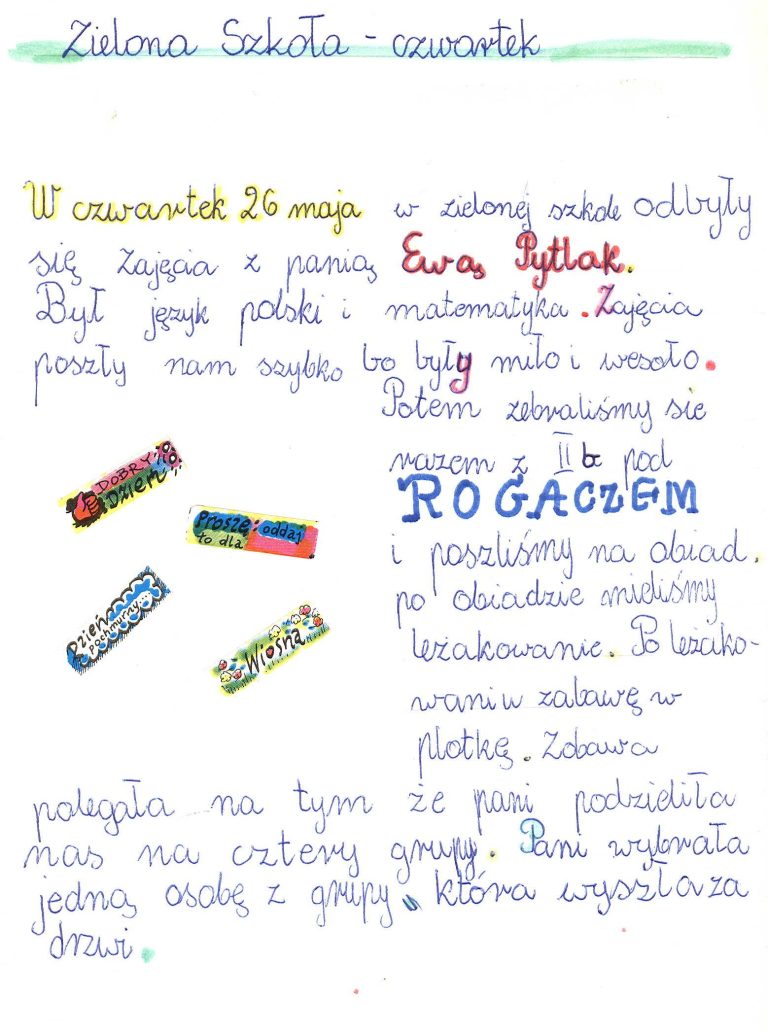 Zielona Szkoła - czwartek
W czwartek 26 maja w zielonej szkole odbyły
się Zajęcia z panią Ewą Pytlak.
Był język polski i matematyka. Zajęcia
poszły nam szybko bo były miło i wesoło.
Potem zebraliśmy sie
razem z II b pod
ROGACZEM
i poszliśmy na obiad.
po obiedzie mieliśmy
leżakowanie. Po leżako-
waniu zabawę w
plotkę. Zabawa
DOBRY
Dzień
Proszę: oddaj
to dla
Dzień
pochmurny...
Wiosna
polegała na tym że pani podzieliła
nas na cztery grupy. Pani wybrała
jedną osobę z grupy, która wyszła za
drzwi.